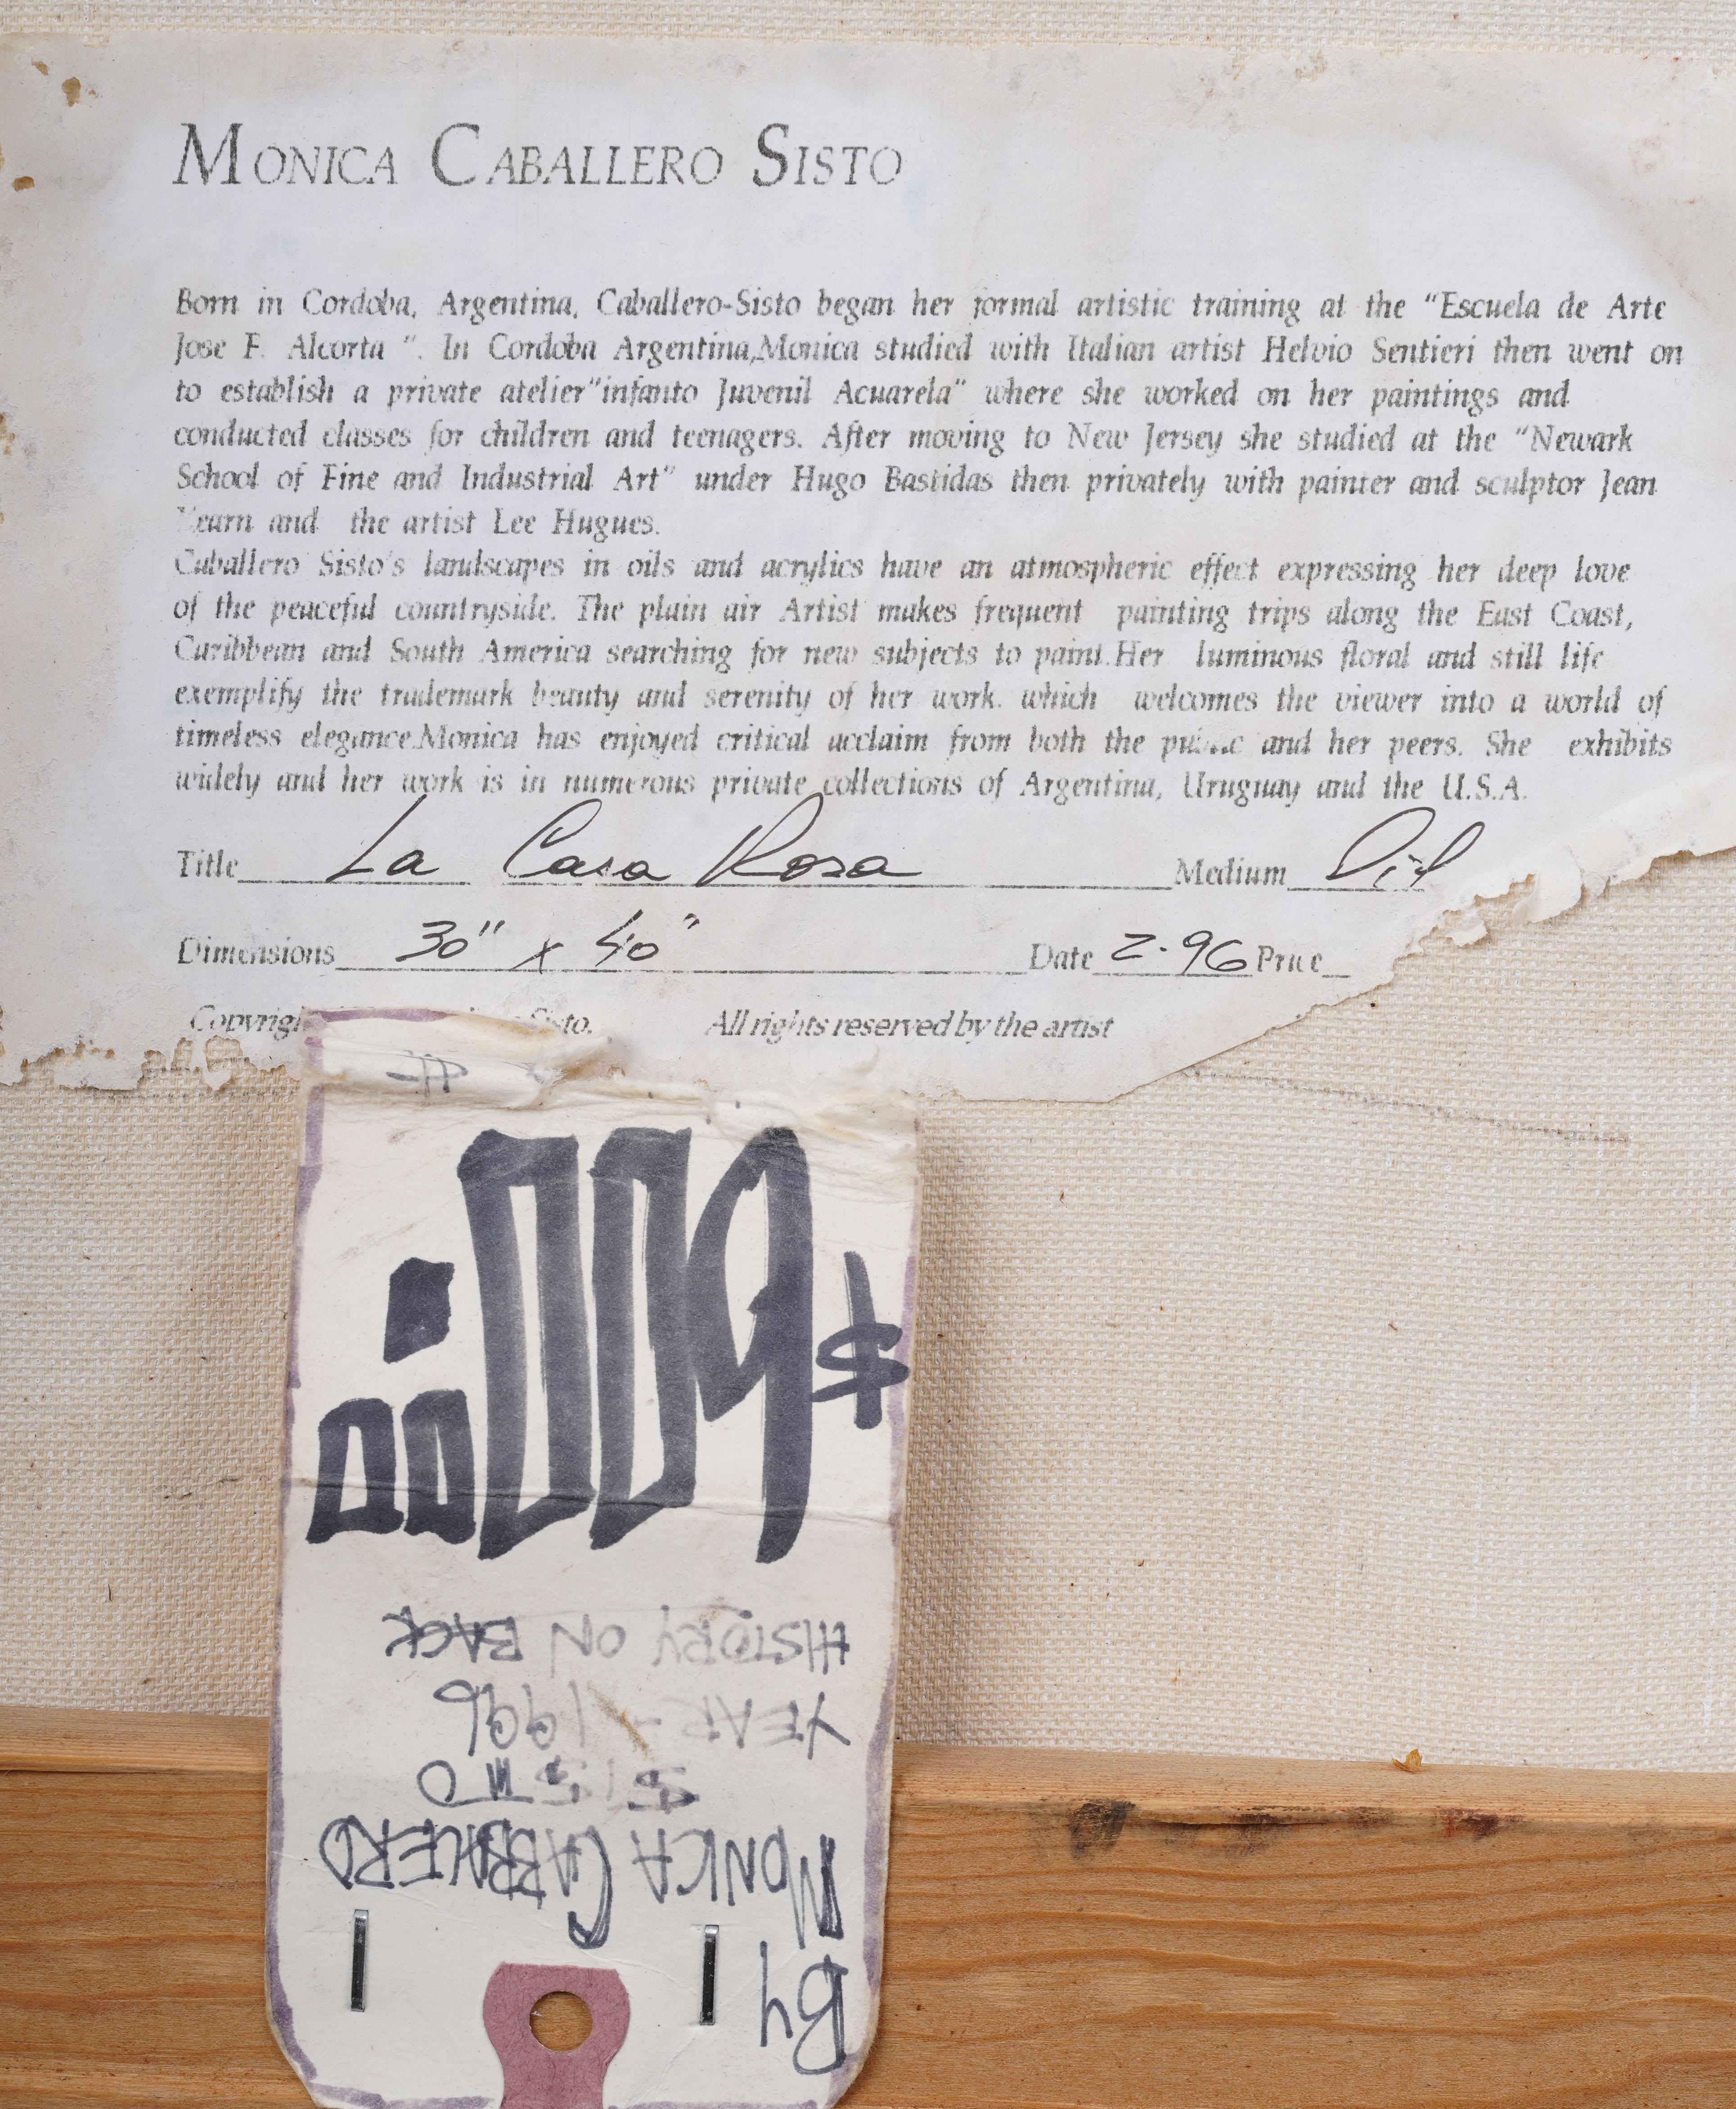 MONICA CABALLERO SISTO
Born in Cordoba, Argentina, Caballero-Sisto began her formal artistic training at the "Escuela de Arte
Jose F. Alcorta ". In Cordoba Argentina,Monica studied with Italian artist Helvio Sentieri then went on
to establish a private atelier"infanto Juvenil Acuarela" where she worked on her paintings and
conducted classes for children and teenagers. After moving to New Jersey she studied at the "Newark
School of Fine and Industrial Art" under Hugo Bastidas then privately with painter and sculptor Jean
and the artist Lee Hugues.
Caballero Sisto's landscapes in oils and acrylics have an atmospheric effect expressing her deep love
of the peaceful countryside. The plain air Artist makes frequent painting trips along the East Coast,
Caribbean and South America searching for new subjects to paint.Her luminous floral and still life
exemplify the trademark beauty and serenity of her work. which welcomes the viewer into a world of
timeless elegance.Monica has enjoyed critical acclaim from both the public and her peers. She exhibits
widely and her work is in numerous private collections of Argentina, Uruguay and the U.S.A.
Title La Casa Rosa Medium Oil
Dimensions 30" x 40" Date 2-96 Price
Copyrigh Sisto. All rights reserved by the artist
By
MONICA CABALLERO
SISTO
YEAR - 1996
HISTORY ON BACK
$600.00